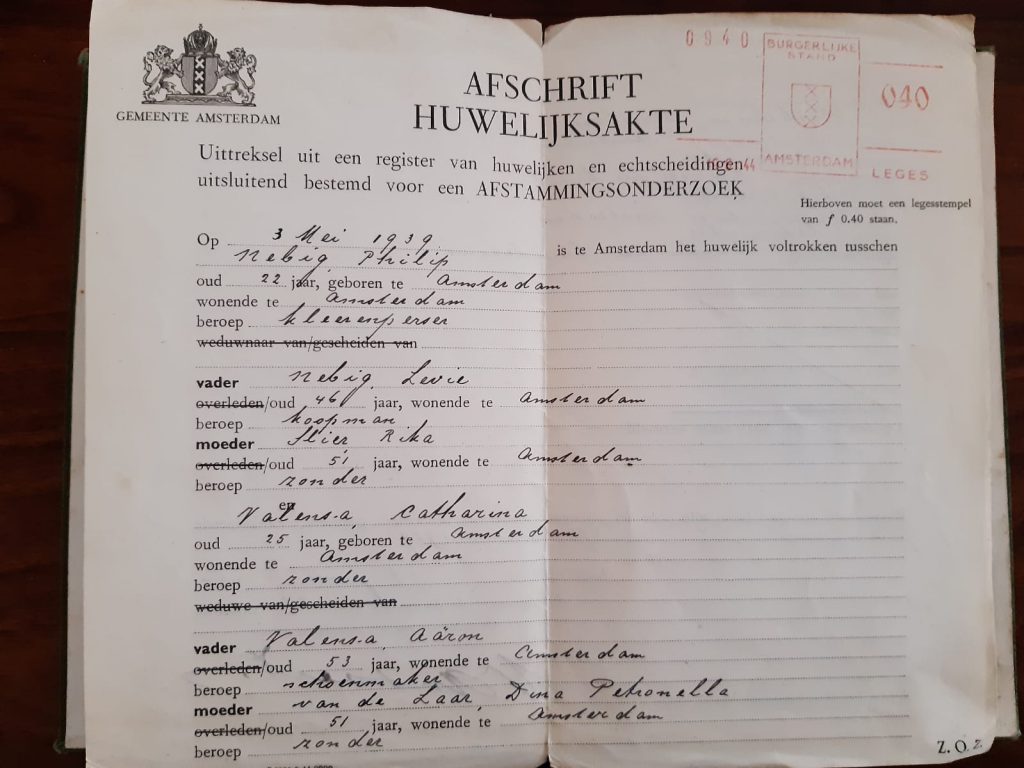 GEMEENTE AMSTERDAM
0940
BURGERLIJKE
STAND
040
AMSTERDAM
LEGES
44
AFSCHRIFT
HUWELIJKSAKTE
Uittreksel uit een register van huwelijken en echtscheidingen
uitsluitend bestemd voor een AFSTAMMINGSONDERZOEK
Hierboven moet een legesstempel
van ƒ 0.40 staan.
Op 3 Mei 1939 is te Amsterdam het huwelijk voltrokken tusschen
Nebig Philip
oud 22 jaar, geboren te Amsterdam
wonende te Amsterdam
beroep kleerenperser
weduwnaar van/gescheiden van
vader Nebig, Levie
overleden/oud 46 jaar, wonende te Amsterdam
beroep koopman
moeder Slier, Rika
overleden/oud 51 jaar, wonende te Amsterdam
beroep zonder
en
Valensa, Catharina
oud 25 jaar, geboren te Amsterdam
wonende te Amsterdam
beroep zonder
weduwe van/gescheiden van
vader Valensa, Aäron
overleden/oud 53 jaar, wonende te Amsterdam
beroep schoenmaker
moeder van de Laar, Dina Petronella
overleden/oud 51 jaar, wonende te Amsterdam
beroep zonder
Z. O. Z.